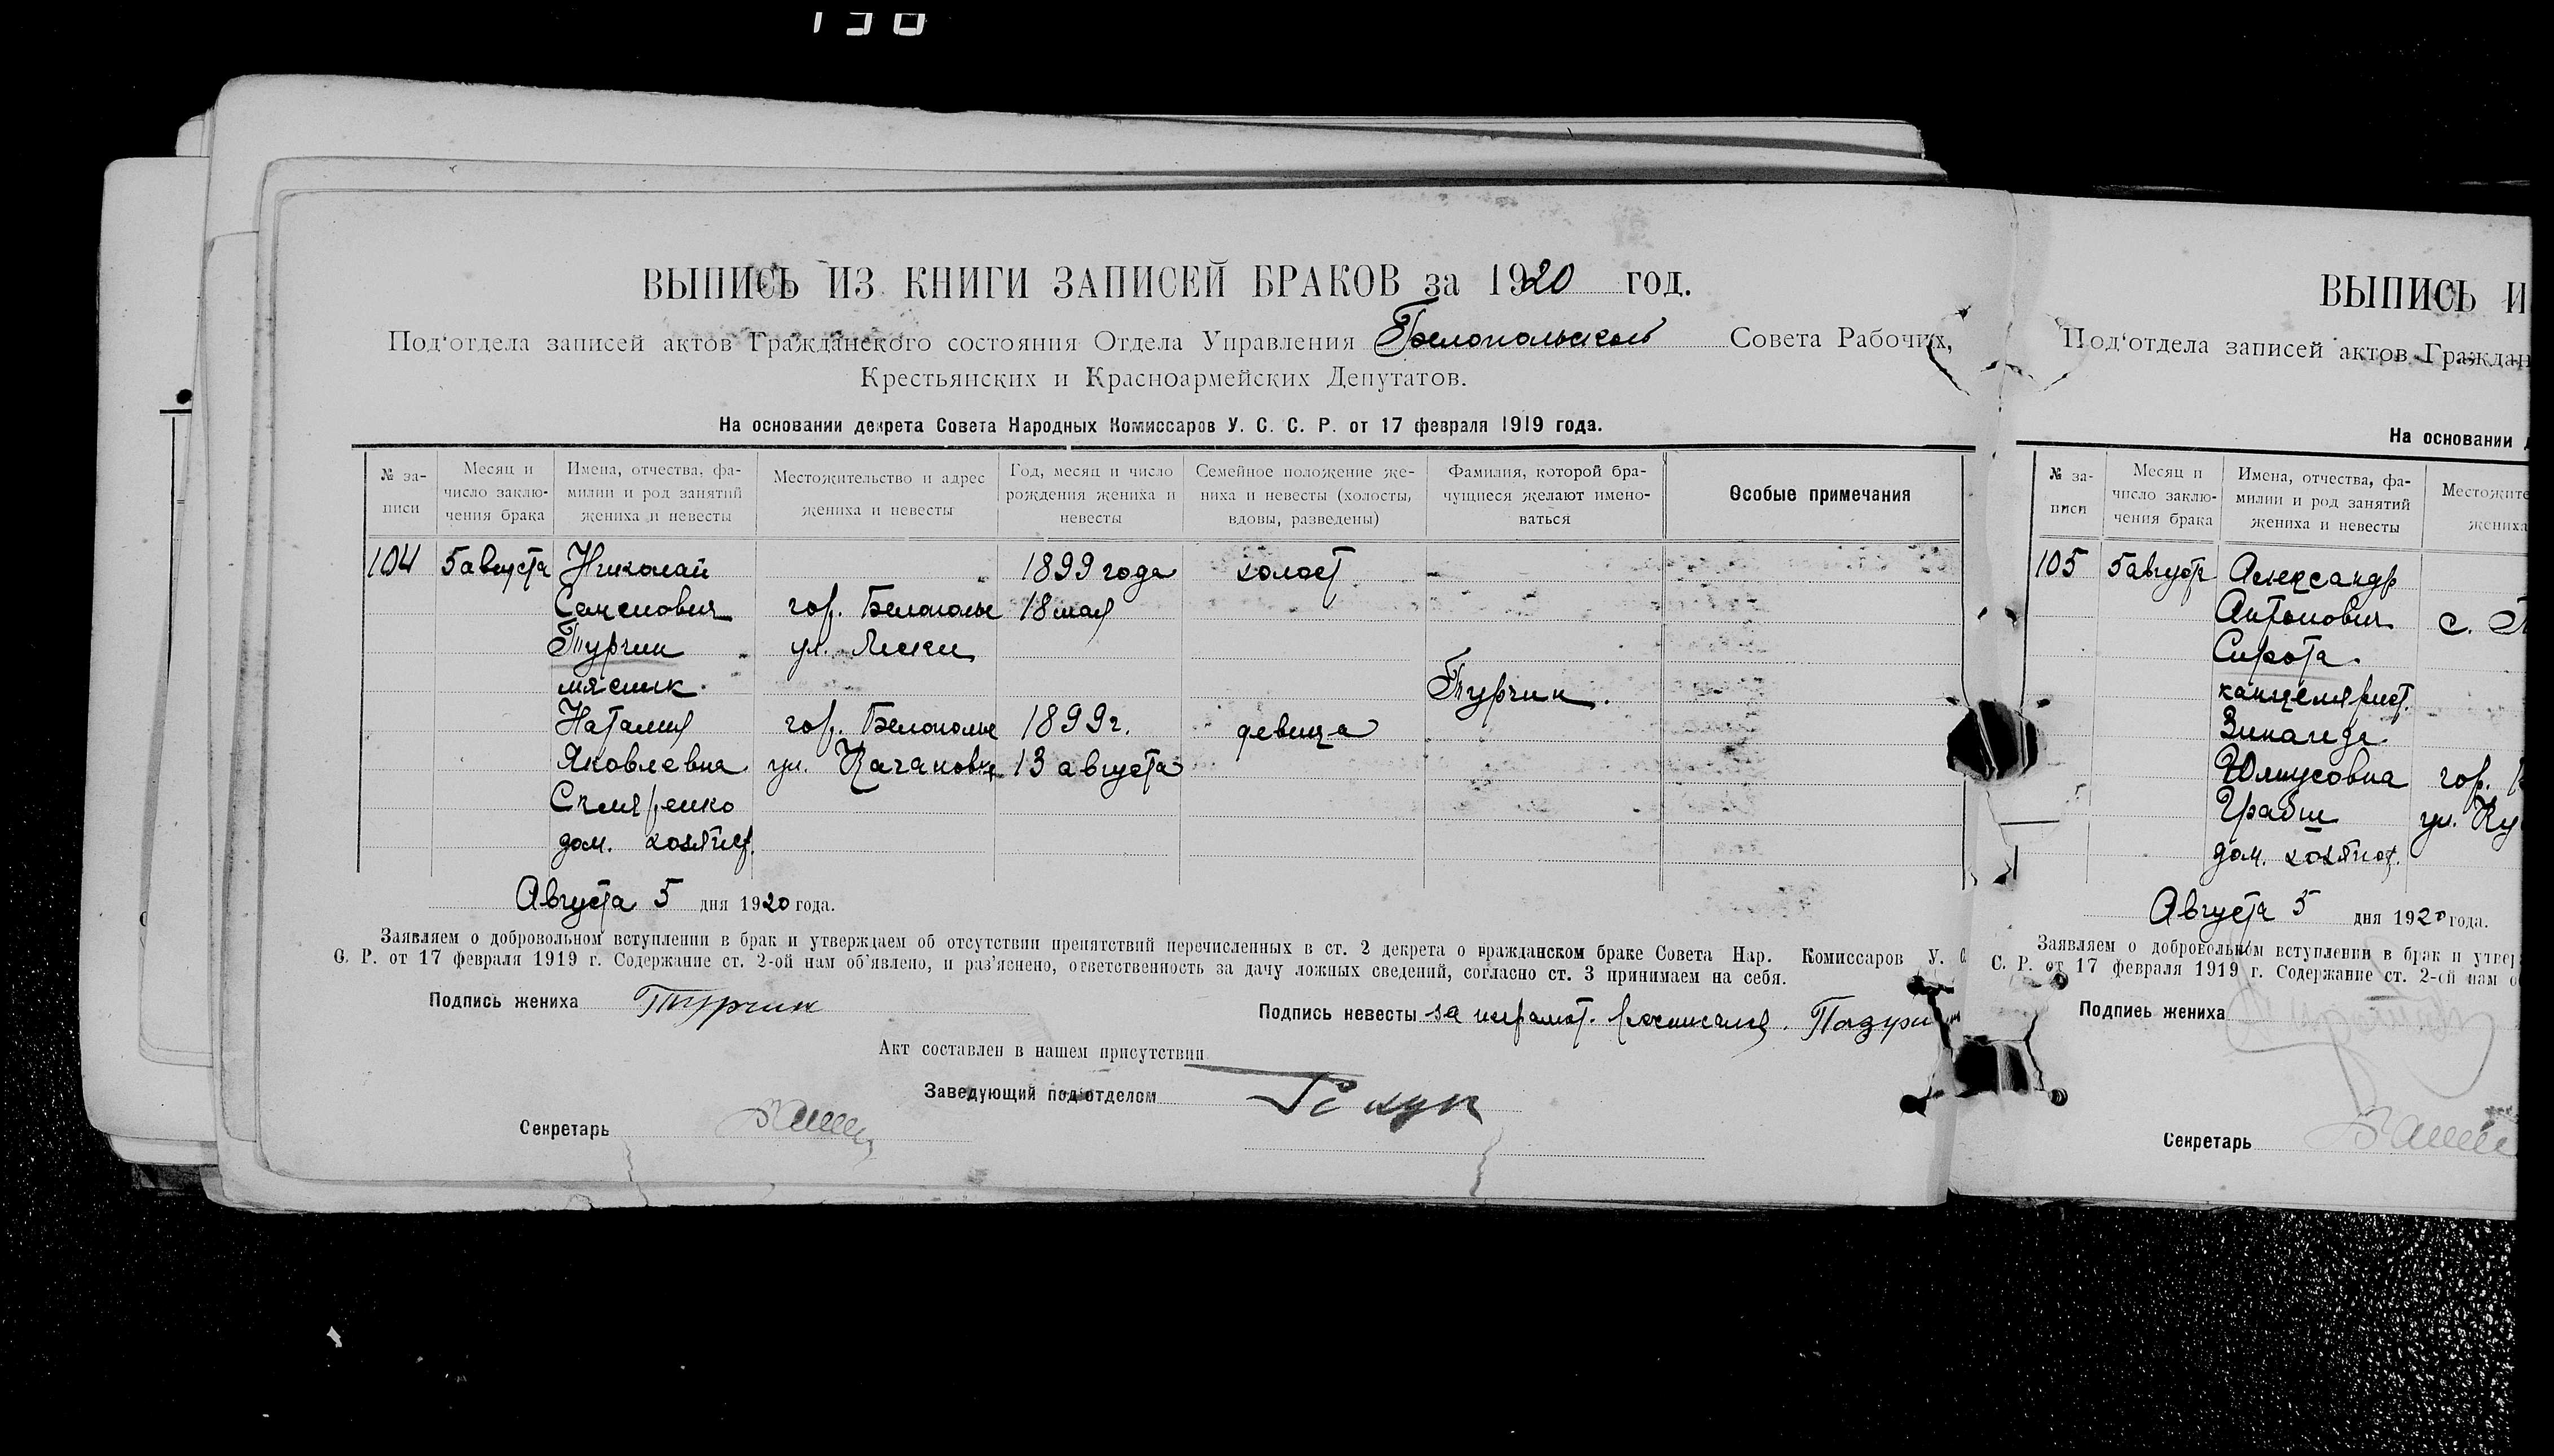 ВЫПИСЬ ИЗ КНИГИ ЗАПИСЕЙ БРАКОВ за 1920 год.
Под‘отдела записей актов Гражданского состояния Отдела Управления Белопольской Совета Рабочих,
Крестьянских и Красноармейских Депутатов.
На основании декрета Совета Народных Комиссаров У. С. С. Р. от 17 февраля 1919 года.
№ за-
писи
Месяц и
число заклю-
чения брака
Имена, отчества, фа-
милии и род занятий
жениха и невесты
Местожительство и адрес
жениха и невесты
Год, месяц и число
рождения жениха и
невесты
Семейное положение же-
ниха и невесты (холосты,
вдовы, разведены)
Фамилия, которой бра-
чущиеся желают имено-
ваться
Особые примечания
104 5 августа Николай 1899 года холост
Семенович гор. Белополье 18 мая
Турчин ул. Лески
мясник Турчин.
Наталия гор. Белополье 1899 г. девица
Яковлевна ул. Качановка 13 августа
Скляренко
дом. хозяйс.
Августа 5 дня 1920 года.
Заявляем о добровольном вступлении в брак и утверждаем об отсутствии препятствий перечисленных в ст. 2 декрета о гражданском браке Совета Нар. Комиссаров У. С.
С. Р. от 17 февраля 1919 г. Содержание ст. 2-ой нам об’явлено, и раз’яснено, ответственность за дачу ложных сведений, согласно ст. 3 принимаем на себя.
Подпись жениха Турчин
Подпись невесты за неграмот. росписался
Акт составлен в нашем присутствии
Заведующий под‘отделом
Секретарь
ВЫПИСЬ И
Под‘отдела записей актов Граждан
На основании
№ за-
писи
Месяц и
число заклю-
чения брака
Имена, отчества, фа-
милии и род занятий
жениха и невесты
Местожите
жениха
105 5 августа Александр
Антонович с.
Сирота.
канцелярист.
Зинаида
Юлиусовна гор.
Грабш ул.
дом. хозяйс.
Августа 5 дня 1920 года.
Заявляем о добровольном вступлении в брак и утвер
С. Р. от 17 февраля 1919 г. Содержание ст. 2-ой нам о
Подпись жениха
Секретарь